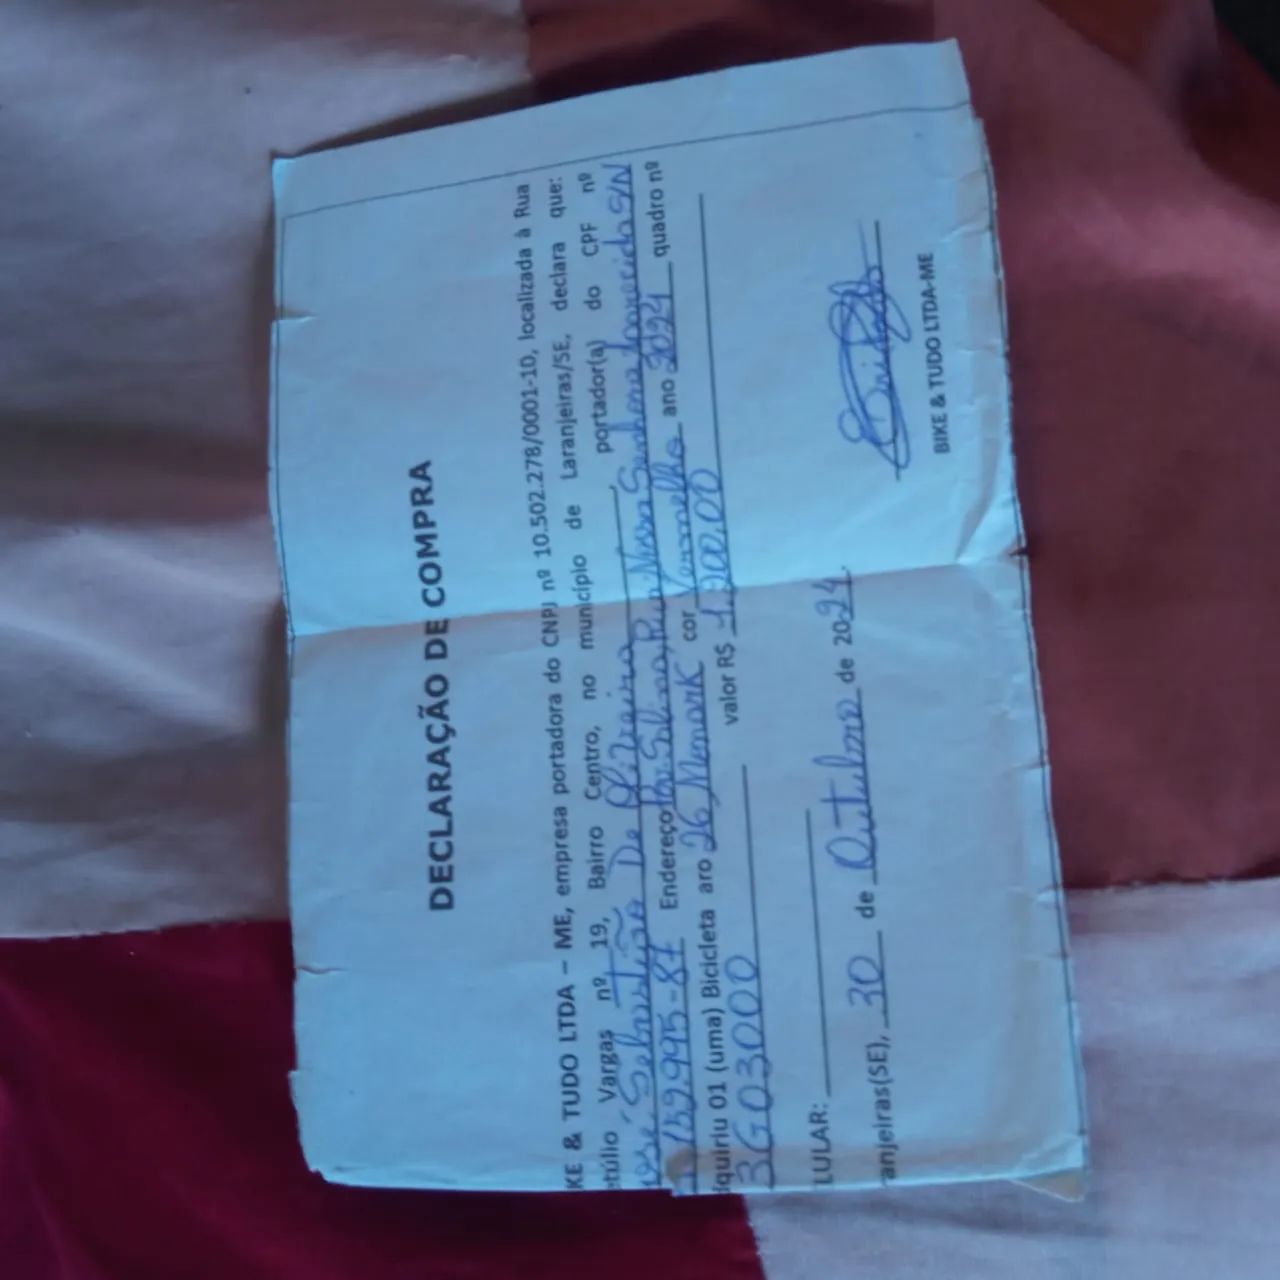 DECLARAÇÃO DE COMPRA
KE & TUDO LTDA – ME, empresa portadora do CNPJ nº 10.502.278/0001-10, localizada à Rua
etúlio Vargas nº 19, Bairro Centro, no município de Laranjeiras/SE, declara que:
osé Sebastião De Oliveira portador(a) do CPF nº
159.995-87 Endereço Pov. Salinas, Rua Nossa Senhora Aparecida S/N
dquiriu 01 (uma) Bicicleta aro 26 Monark cor Vermelho ano 2024 quadro nº
3G03000 valor R$ 1.200,00
LULAR:
anjeiras(SE), 30 de Outubro de 2024
BIKE & TUDO LTDA-ME